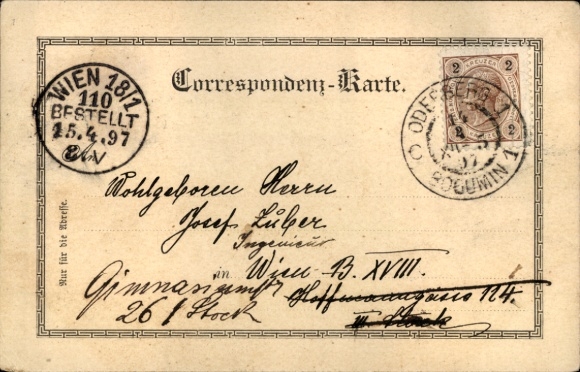 Correspondenz-Karte.
WIEN 18/1
110
BESTELLT
15.4.97
2
2
KREUZER
2
2
ODERBERG 1
97
BOGUMIN 1
Wohlgeboren Herrn
Josef Zuber
Ingenieur
in Wien B. XVIII.
Gimnasiumstr
26 I Stock
Hoffmanngasse No 4.
III. Stock
Nur für die Adresse.